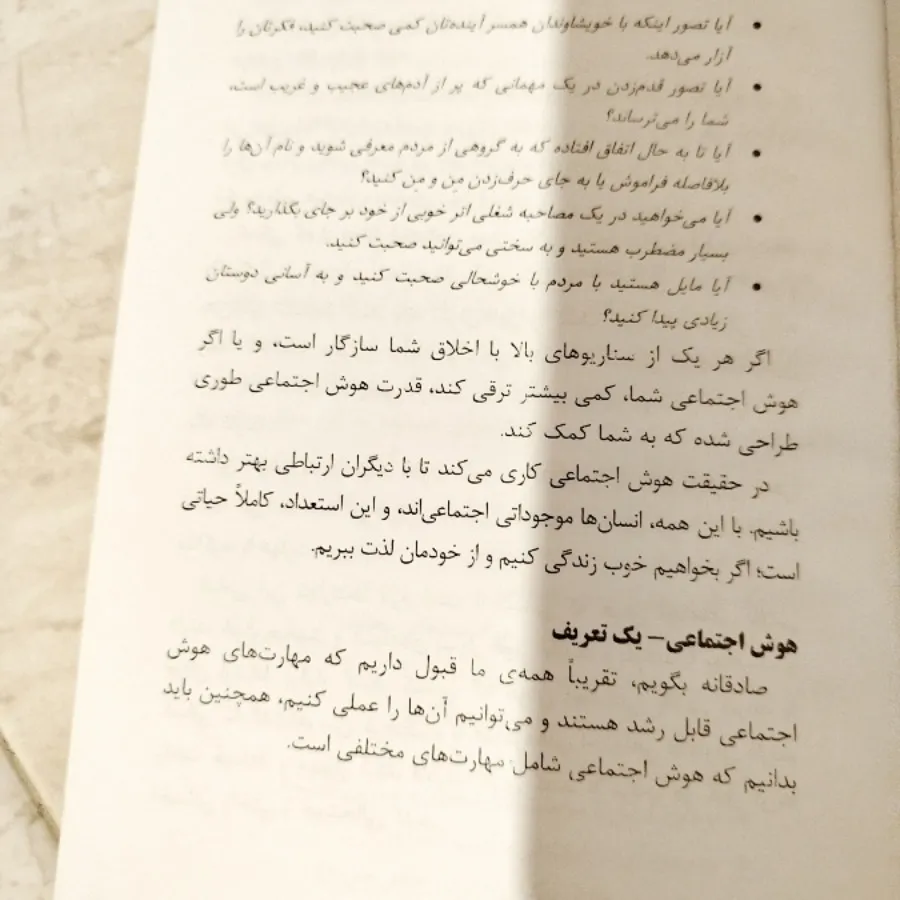 • آیا تصور اینکه با خویشاوندان همسر آینده‌تان کمی صحبت کنید، فکرتان را
آزار می‌دهد.
• آیا تصور قدم‌زدن در یک مهمانی که پر از آدم‌های عجیب و غریب است،
شما را می‌ترساند؟
• آیا تا به حال اتفاق افتاده که به گروهی از مردم معرفی شوید و نام آن‌ها را
بلافاصله فراموش یا به جای حرف‌زدن مِن و مِن کنید؟
• آیا می‌خواهید در یک مصاحبه شغلی اثر خوبی از خود بر جای بگذارید؟ ولی
بسیار مضطرب هستید و به سختی می‌توانید صحبت کنید.
• آیا مایل هستید با مردم با خوشحالی صحبت کنید و به آسانی دوستان
زیادی پیدا کنید؟
اگر هر یک از سناریوهای بالا با اخلاق شما سازگار است، و یا اگر
هوش اجتماعی شما، کمی بیشتر ترقی کند، قدرت هوش اجتماعی طوری
طراحی شده که به شما کمک کند.
در حقیقت هوش اجتماعی کاری می‌کند تا با دیگران ارتباطی بهتر داشته
باشیم. با این همه، انسان‌ها موجوداتی اجتماعی‌اند، و این استعداد، کاملاً حیاتی
است؛ اگر بخواهیم خوب زندگی کنیم و از خودمان لذت ببریم.
هوش اجتماعی– یک تعریف
صادقانه بگویم، تقریباً همه‌ی ما قبول داریم که مهارت‌های هوش
اجتماعی قابل رشد هستند و می‌توانیم آن‌ها را عملی کنیم، همچنین باید
بدانیم که هوش اجتماعی شامل مهارت‌های مختلفی است.